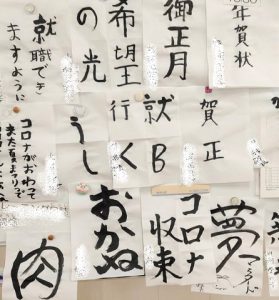 年賀状
御正月
希望
の光
就職でき
ますように
賀正
就B
行く
うし
コロナがおわって
また夏まつりで
夢
コロナ
収束
おかね
肉